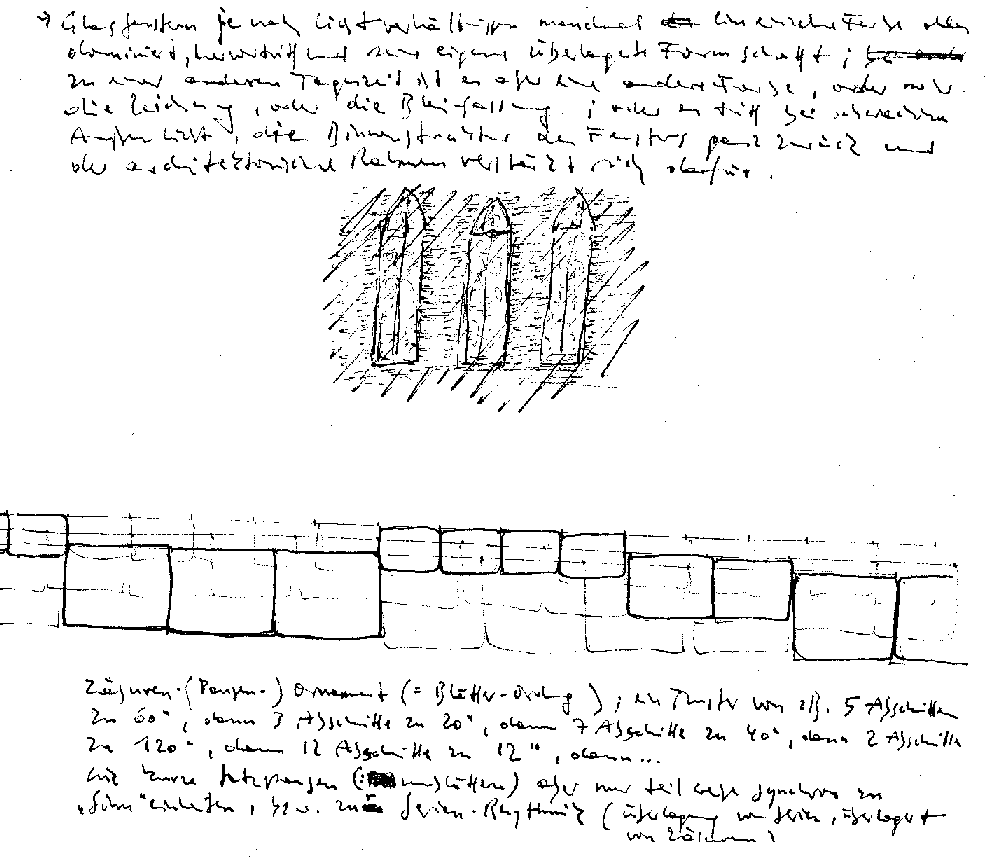 → Glasfenstern je nach Lichtverhältnissen manchmal die einzelne Farbe
dominiert, hervortritt und eine eigene überlagerte Form schafft;
zu einer anderen Tageszeit ist es eher eine andere Farbe, oder
die Zeichnung, oder die Bleifassung; oder es tritt bei schwachem
Außenlicht, die Binnenstruktur des Fensters ganz zurück und
der architektonische Rahmen verstärkt sich dafür.
Zäsuren-(Pausen-) Ornament (= Blätter-Ordnung); ein Muster von z.B. 5 Abschnitten
zu 60", dann 3 Abschnitte zu 20", dann 7 Abschnitte zu 40", dann 2 Abschnitte
zu 120", dann 12 Abschnitte zu 12", dann...
wie kurze Satzpausen ( umblättern) aber nur teilweise synchron zu
"Sinn"einheiten, bzw. zu Serien-Rhythmik (Überlagerung von Serien, überlagert
von Zäsuren)